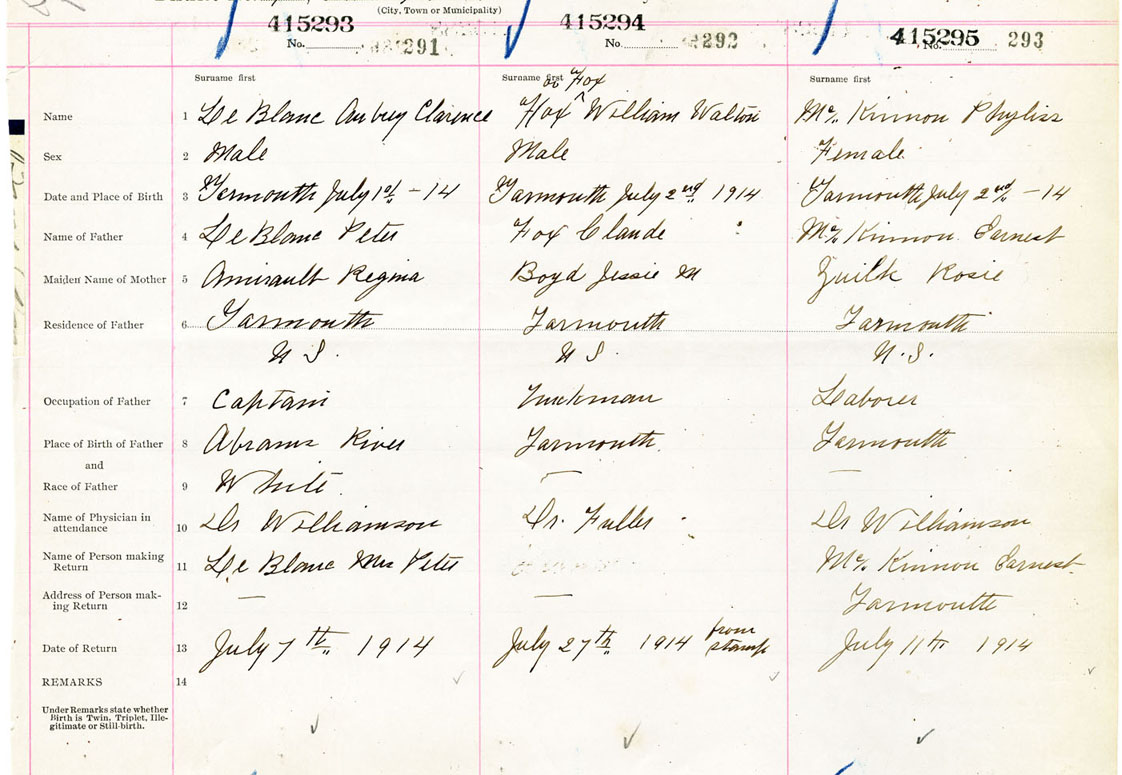 (City, Town or Municipality)
415293 415294 415295
No. 291 No. 292 No. 293
Surname first Surname first Surname first
or Fox
Name 1 Le Blanc Aubrey Clarence Hox ^ William Walton Mc Kinnon Phyliss
Sex 2 Male Male Female
Date and Place of Birth 3 Yarmouth July 1st - 14 Yarmouth July 2nd 1914 Yarmouth July 2nd - 14
Name of Father 4 Le Blanc Peter Fox Claude Mc Kinnon Earnest
Maiden Name of Mother 5 Amirault Regina Boyd Jessie M Rosie
Residence of Father 6 Yarmouth Yarmouth Yarmouth
N S. N S. N.S.
Occupation of Father 7 Captain Truckman Laborer
Place of Birth of Father 8 Abrams River Yarmouth Yarmouth
and
Race of Father 9 White. — —
Name of Physician in
attendance 10 Dr Williamson Dr. Fuller Dr Williamson
Name of Person making
Return 11 Le Blanc Mrs Peter Mc Kinnon Earnest
Address of Person mak-
ing Return 12 — — Yarmouth
Date of Return 13 July 7th 1914 July 27th 1914 from stamp July 11th 1914
REMARKS 14
Under Remarks state whether
Birth is Twin, Triplet, Ille-
gitimate or Still-birth.